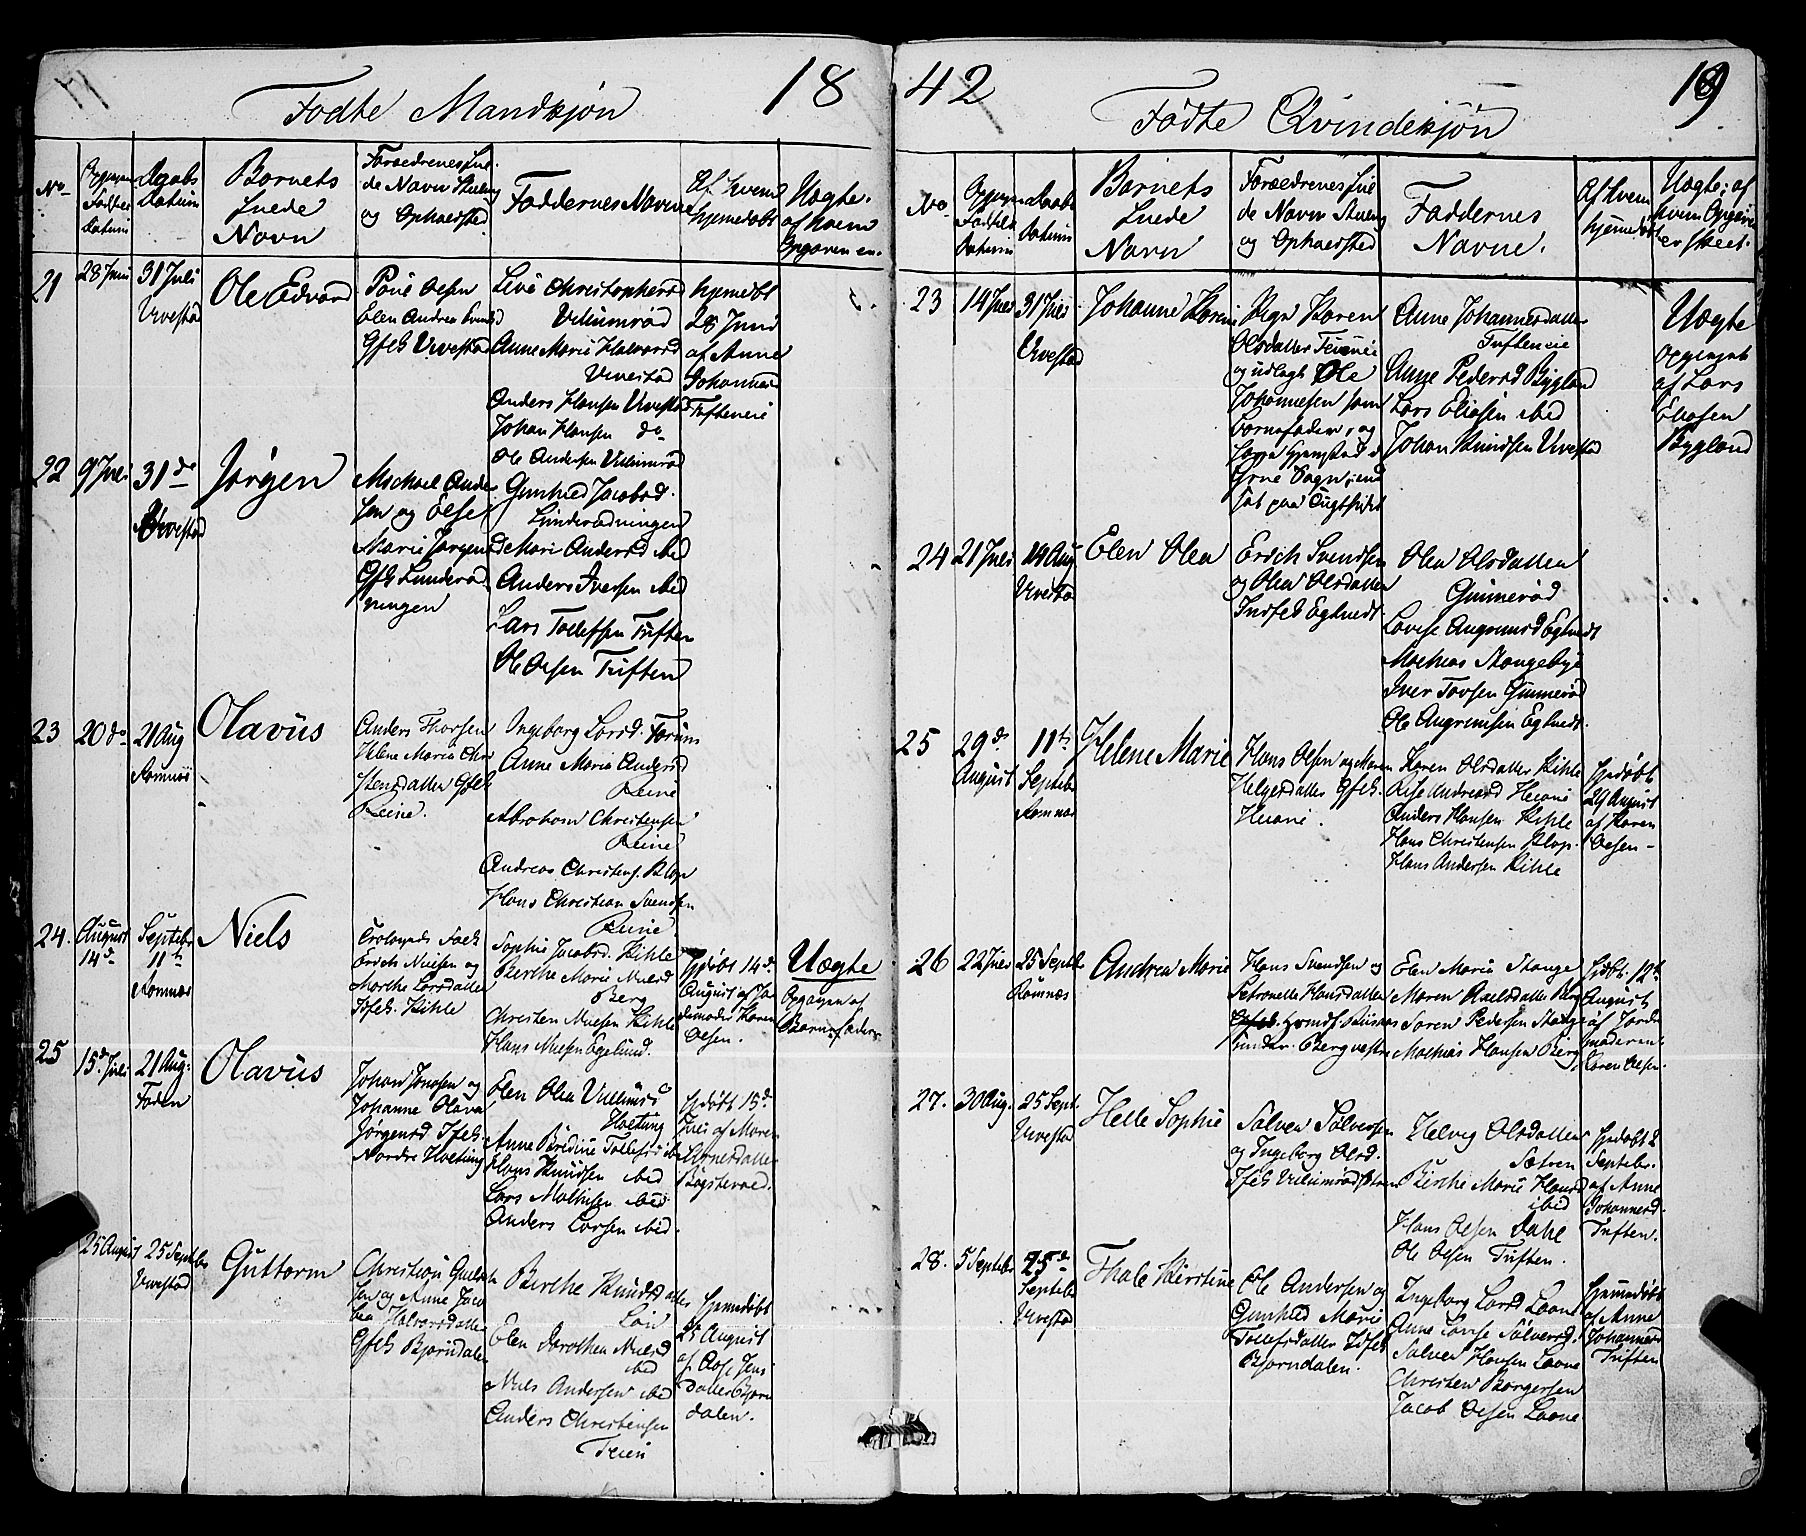 18 42
19
Fødte Mandkjøn
No
Daabs
Datum
Barnets
fuede
Navn
Foræedrenes fue
de Navn Stilling
og Ophoeldsted
Faddernes Navne
Af hvem
hjemedøbt
Uægte.
af hvem
Opgaven er.
21
28 Juni
31 Juli
Urvestad
Ole Edvard
Povel Oelsen
Elen Andrea Svends
Gfels Urvestad
Live Christophersd
Vilumrød
Anne Marie Halvorsd
Urvestad
Anders Hansen Urvestad
Johan Hansen do
Ole Andersen Vilumrød
hjemedøbt
28 Juni
af Anne
Johannesd
Tufteneie
22
9 Juli
31 do
Urvestad
Jørgen
Michael Ander
sen og Else
Marie Jørgensd
Gfels Lunderød
ningen
Gunhild Jacobsd.
Lunderødningen
Marie Andersd ibid
Anders Iversen ibid
Lars Tollefsen Tuften
Ole Oelsen Tuften
23
20 do
21 Aug
Ramnæs
Olavus
Anders Thorsen
Helene Maria Chri
stensdatter Gfels
Reine.
Ingeborg Larsd.
Anne Maria Andersd
Reine
Abraham Christensen
Reine
Andreas Christens. Klop
Hans Christian Svendsen
Reine
24.
August
14 d.
Septebr
11te
Ramnæs
Niels
Erich Nielsen og
Marthe Larsdatter
Ifels. Kihle
Sophie Jacobsd. Kihle
Berthe Marie Nielsd
Berg
Christen Nielsen Kihle
Hans Nielsen Egelund.
hjdøbt 14 d.
August af Jo
demoder Karen
Oelsen.
Uægte
Opgaven af
Barnefaderen
25
15 d. Juli
21 Aug:
Foden
Olavus
Johan Jonasen og
Johanne Olava
Jørgensd Ifels.
Nordre Hvetung
Elen Olea
Hvetung
Anne Bredine Tollefsd ibid
Hans Knudsen ibid
Lars Mathisen ibid
Anders Larsen ibid.
hjdøbt 15 d.
Juli af Maren
25 August
25 Septebr
Urvestad
Guttorm
Christian Gulich
sen og Anne Jaco
bea Halvorsdatter
Gfels Bjørndalen
Berthe Knudsdatter
Elen Dorothea Nielsd
ibid
Niels Andersen ibid
Anders Christensen
Teien
hjemmedøbt
25 August
af Aase Jens
datter Bjørn
dalen.
Fødte Qvindekjøn
No
Daabs
Datum
Barnets
fuede
Navn
Foræedrenes fue
de Navn Stilling
og Ophoeldsted
Faddernes
Navne.
Af hvem
hjemedøbt
Uægte; af
hvem Opgaven
er skeet.
23
14 Juli
31 Juli
Urvestad
Johanne Karine
Pige Karen
Olsdatter
og udlagt Ole
Johannesen som
barnefader, og
Anne Johannesdatter
Tufteneie
Anne Pedersd Bygland
Lars Eliasen ibid
Johan Knudsen Urvestad
Uægte
Opgivet
af Lars
Eliasen
Bygland
24
21 Juli
14 Aug
Urvestad
Elen Olea
Erich Svendsen
og Olea Olsdatter
Indfels Eghuedt
Olea Olsdatter
Gunnerød
Lovise Angrimsd Eghuedt
Mathias Stangebye
Iver Torsen Gunnerød
Ole Angrimsen Eghuedt.
25
29 d.
August
11te
Septebr
Ramnæs
Helene Marie
Hans Olsen og Maren
Helgesdatter Gfels.
Huanie.
Karen Olsdatter Kihle
Andreasd Huanie
Anders Hansen Kihle
Hans Christensen Klop.
Hans Andersen Kihle
hjdøbt
29 August
af Karen
Oelsen
26
22 Juli
25 Septebr
Ramnæs
Andrea Marie
Hans Svendsen og
Petronelle Hansdatter
Bergvestre
Elen Marie Stange
Maren Axelsdatter Berg
Søren Pedersen Stange
Mathias Hansen Berg
hjdøbt. 12te
August
af Jorde
moderen
Karen Oelsen.
27.
30 Aug.
25 Sept.
Urvestad
Helle Sophie
Salve Salvesen
og Ingeborg Olsd.
Ifels Vilumrødeteren
Helvig Olsdatter
Sætren
Birthe Marie Hansd
ibid
Hans Oelsen Dahle
Ole Oelsen Tuften.
hjdøbt 2
Septebr.
af Anne
Johannesd.
Tuften.
28.
5 Septebr
25 d.
Septebr
Urvestad
Thale Kirstine
Ole Andersen og
Gunhild Marie
Tollefsdatter Ifels
Bjørndalen.
Ingeborg Larsd Laane
Anne Lovise Sølversd.
Salve Hansen Laane
Christen Børgersen
Jacob Oelsen Laane
hjemmedøbt
af Anne
Johannesd
Tuften